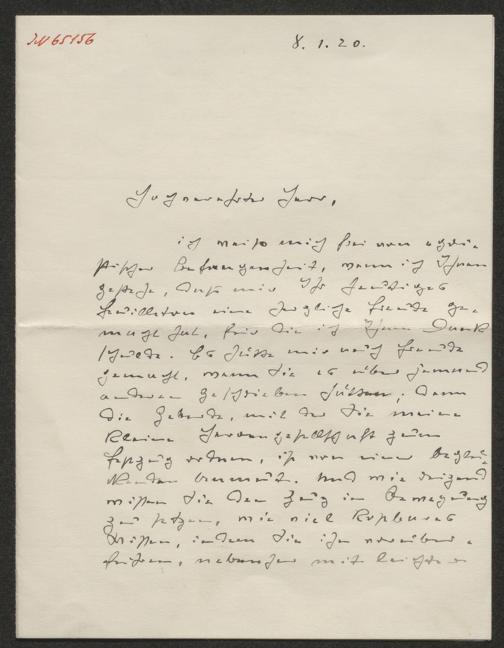 IN 65156
8.1.20.
Hochverehrter Herr,
ich weiß mich frei von egois-
tischer Befangenheit, wenn ich Ihnen
gestehe, daß mir Ihr heutiges
Feuilleton eine herzliche Freude ge-
macht hat, für die ich Ihnen Dank
schulde. Es hätte mir auch Freude
gemacht, wenn Sie es über jemand
anderen geschrieben hätten; denn
die Geberde, mit der Sie meine
kleine Herrengesellschaft zum
Festzug ordnen, ist von einer beglü-
ckenden Anmut. Und wie reizend
wissen Sie den Zug in Bewegung
zu setzen, wie viel Kostbares
wissen, indem Sie ihn vorüber-
führen, nebenher mit leichter